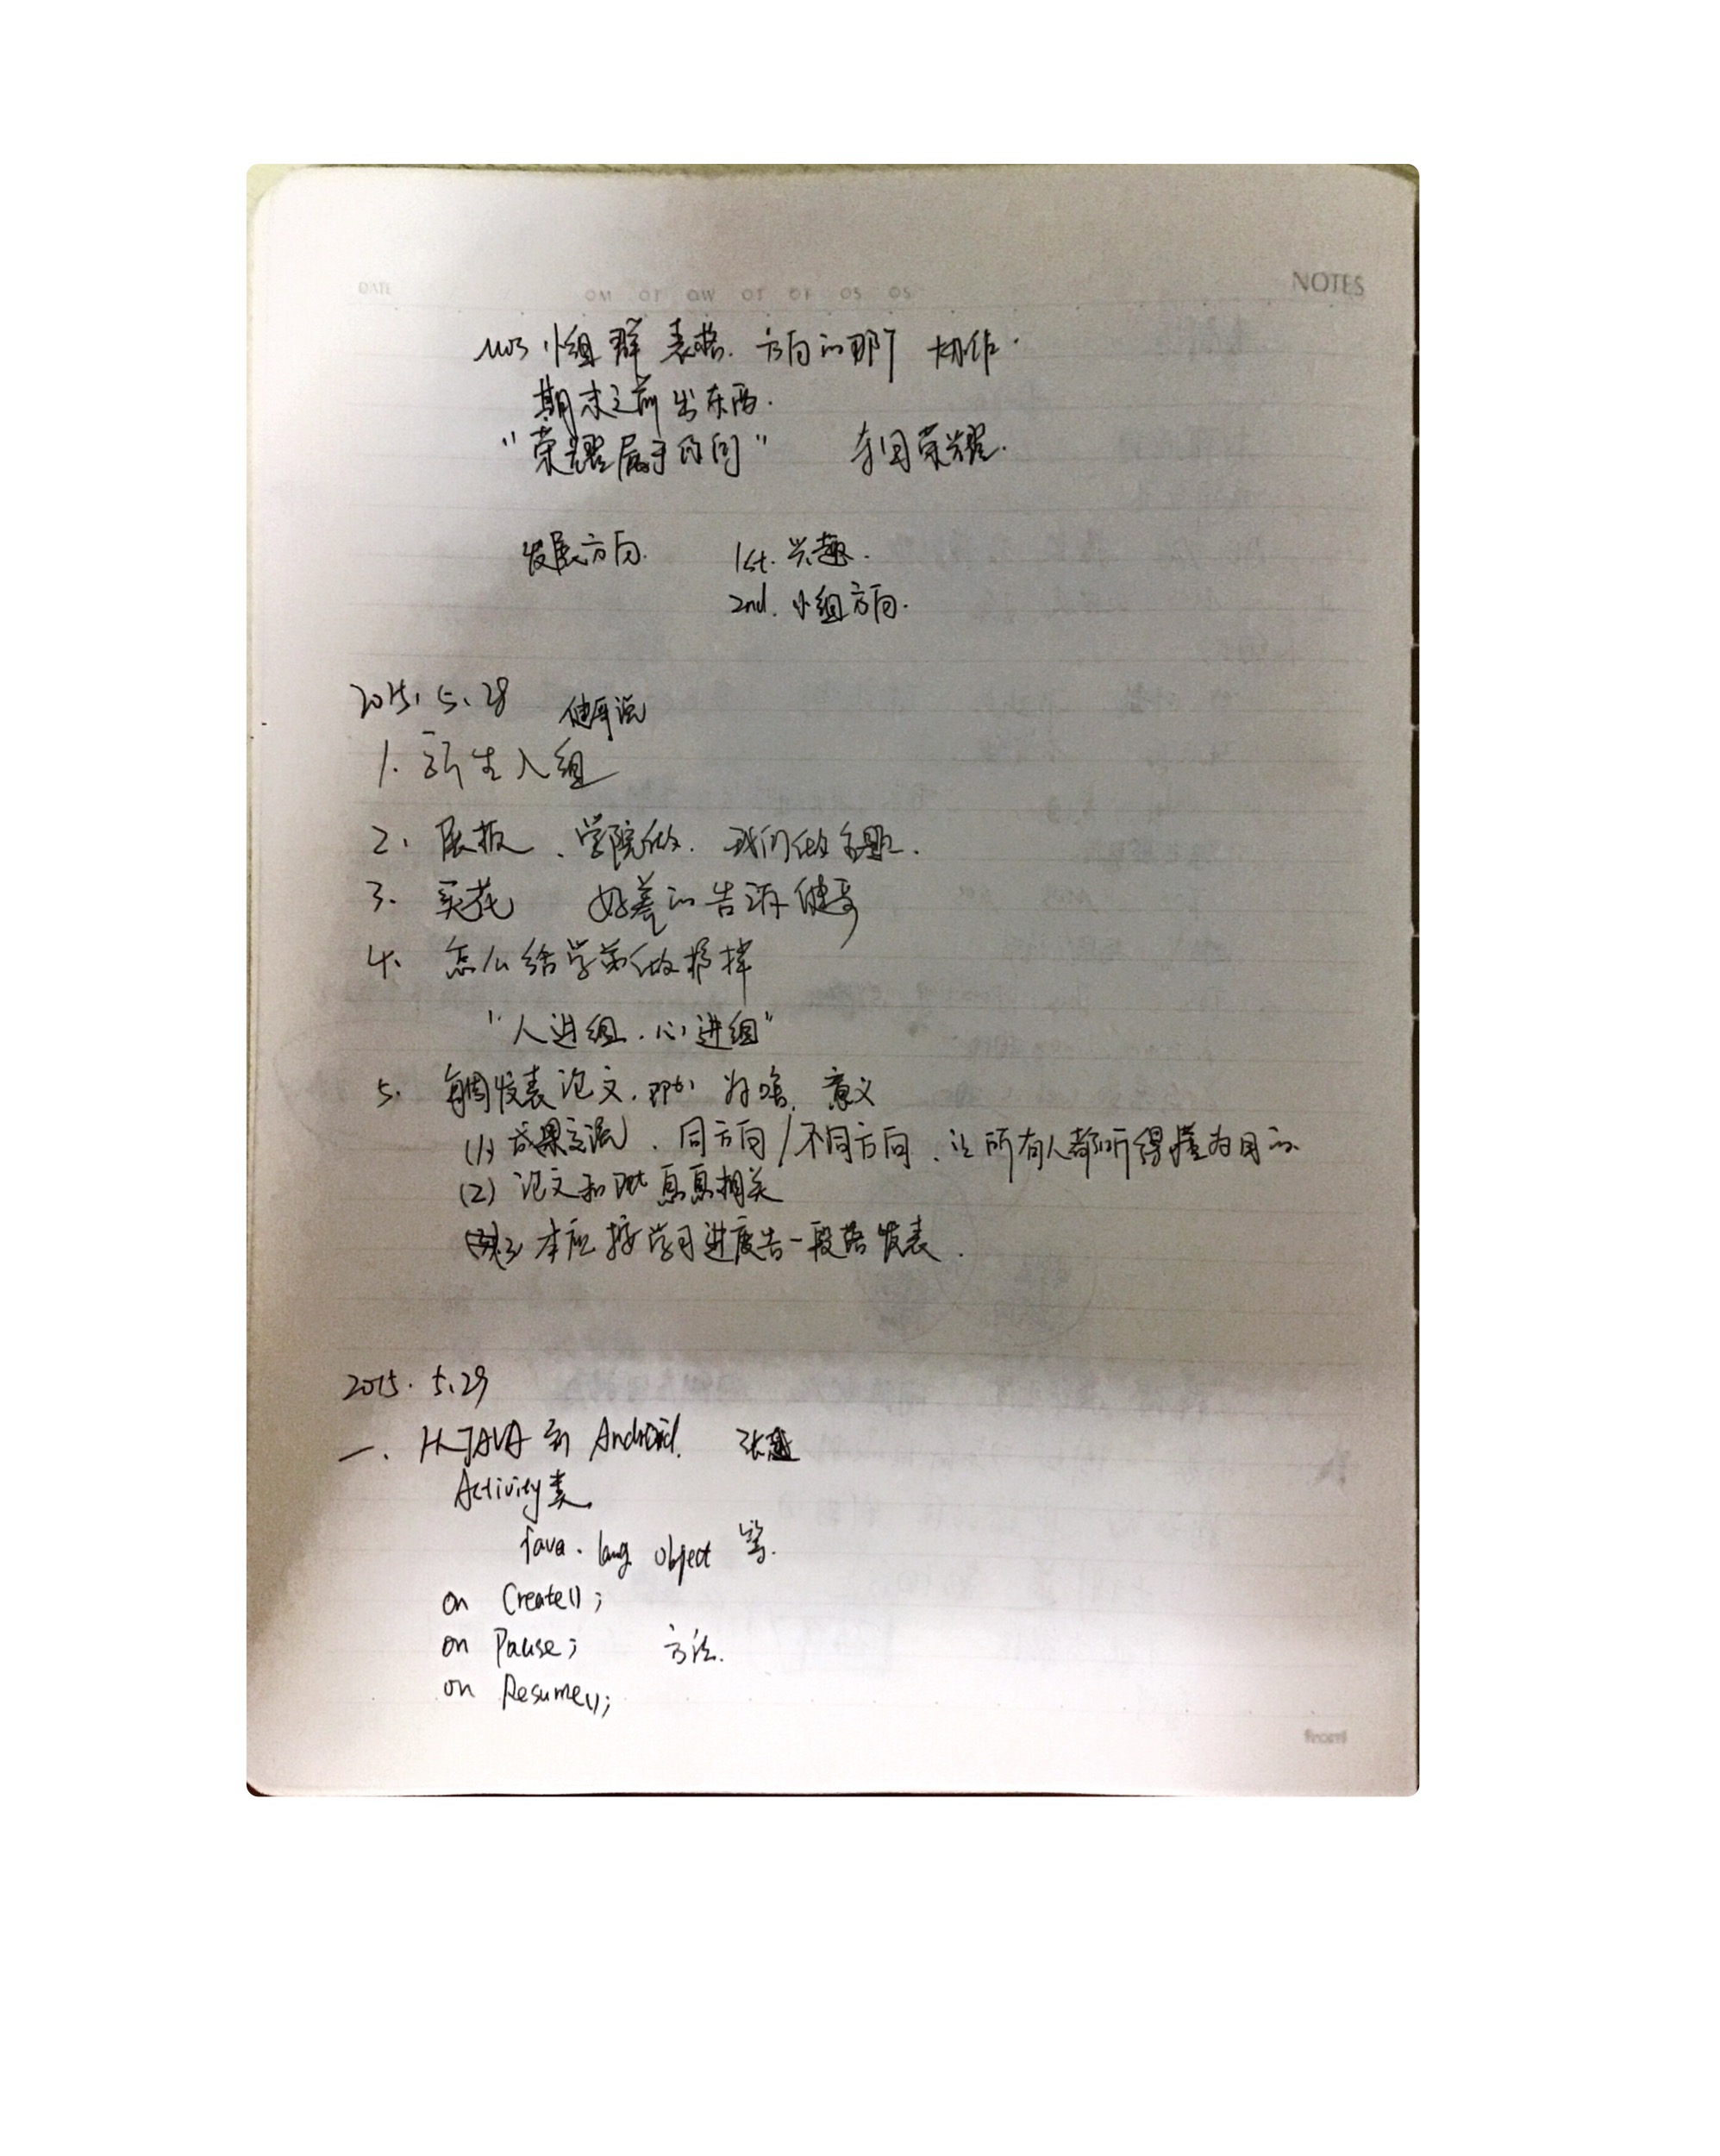 DATE
NOTES
小组群 表格. 方向的那个 协作.
期末之前出东西.
"荣耀属于" 荣耀.
发展方向. 1st. 兴趣.
2nd. 小组方向.
2015. 5. 28 健哥说
1. 新生入组
2. 展板、学院做. 我们做主题.
3. 买花 好差的告诉健哥
4. 怎么给学弟做榜样
"人进组. 心进组"
5. 每周发表论文. 为啥. 意义
(1) 成果交流、同方向/不同方向、让所有人都听得懂为目的
(2) 论文和 息息相关
(3) 本应按学习进度告一段落发表.
2015. 5.29
一、从JAVA到Android. 张
Activity类
java. lang object 等.
on Create();
on Pause; 方法.
on Resume();